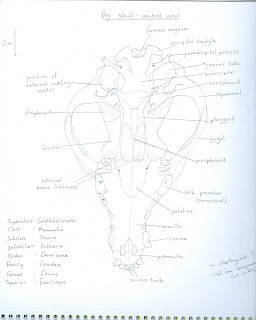 Dog skull - ventral view
foramen magnum
occipital condyle
paraoccipital process
tympanic bulla
basioccipital
basisphenoid
squamosal
position of
external auditory
meatus
alisphenoid
pterygoid
frontal
jugal
presphenoid
internal
nares (choanae)
4th premolar
(carnassial)
palatine
maxilla
canine
premaxilla
incisor teeth
1cm
Superclass: Gnathostomata
Class : Mammalia
Subclass : Theria
Infraclass : Eutheria
Order : Carnivora
Family : Canidae
Genus : Canis
Species : familiaris